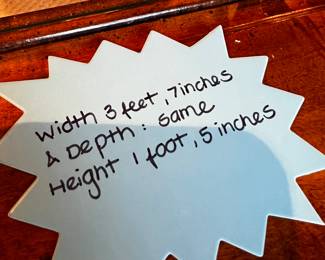 Width 3 feet, 7 inches
& Depth: Same
Height 1 foot, 5 inches